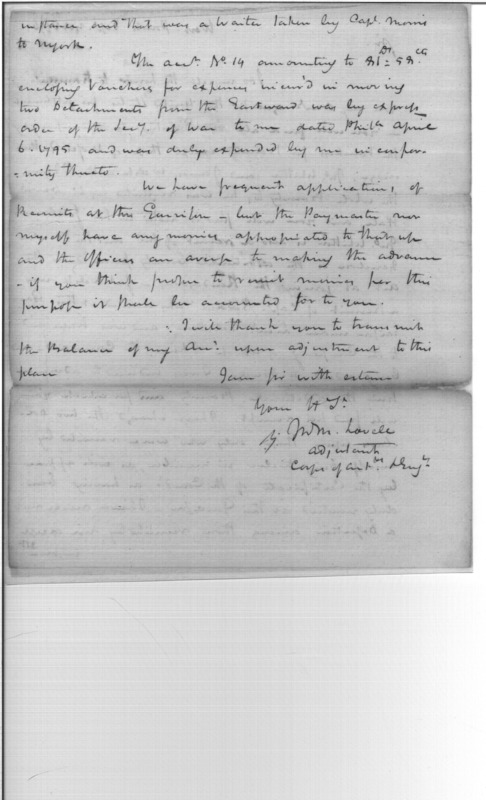 instance and that was a Waiter taken by Capt. Morris
to NYork.
The acct. No. 14 amounting to 81 Ds = 58 cts
enclosing Vouchers for expenses incur'd in moving
two Detachments from the Eastward was by express
order of the Secy. of War to me dated Phila April
6. 1795 and was duly expended by me in confor-
=mity thereto.
We have frequent applications of
Recruits at this Garrison - but the Paymaster nor
myself have any monies appropriated to that use
and the Officers are averse to making the advance
- if you think proper to remit monies for this
purpose it shall be accounted for to you.
I will thank you to transmit
the Balance of my Act. upon adjustment to this
place
I am sir with esteem
Your H St.
Lovell
adjutant
Corps of Art. & Engs